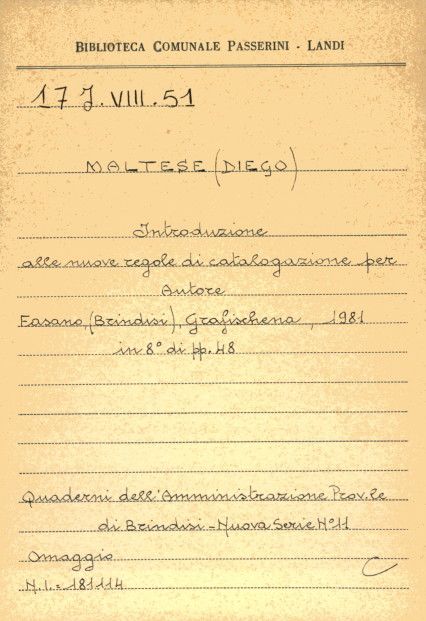 BIBLIOTECA COMUNALE PASSERINI - LANDI
17 J. VIII. 51
MALTESE (DIEGO)
Introduzione
alle nuove regole di catalogazione per
Autore
Fasano, (Brindisi), Grafischena, 1981
in 8° di pp. 48
Quaderni dell'Amministrazione Prov.le
di Brindisi - Nuova Serie N° 11
Omaggio
N.I. = 181114